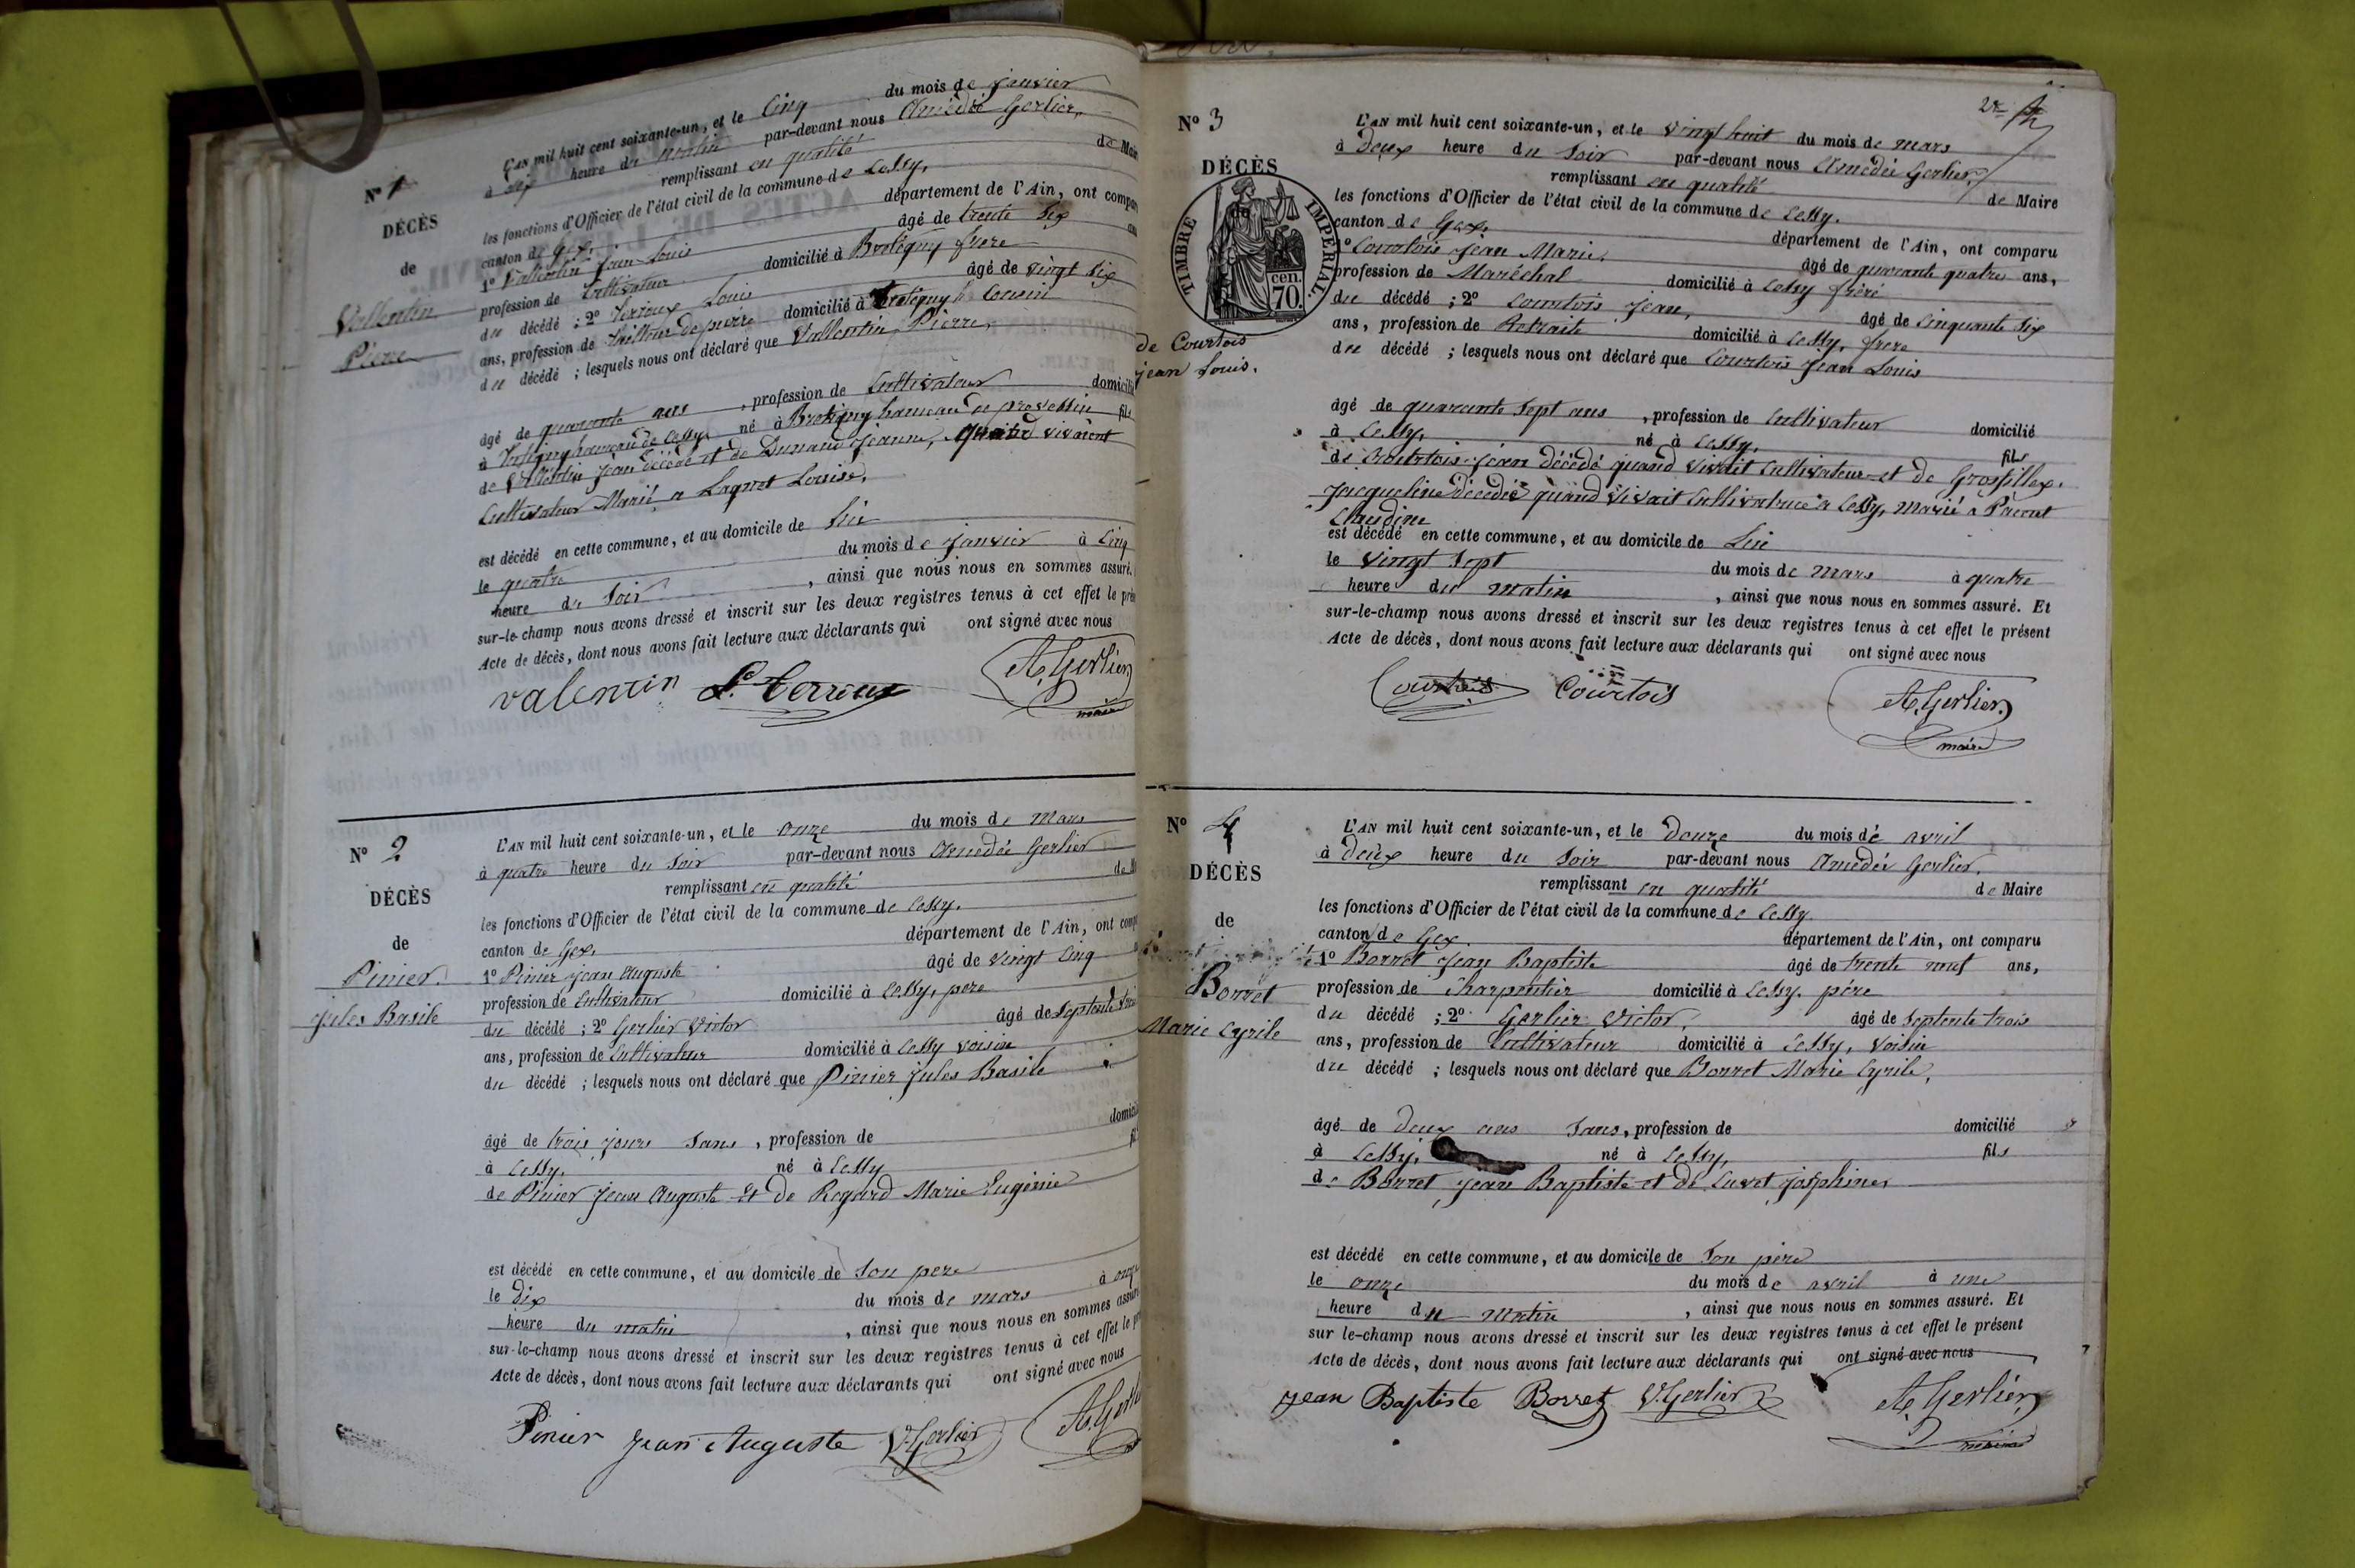 N° 1
DÉCÈS
de
Vallentin
Pierre
L'AN mil huit cent soixante-un, et le Cinq du mois de janvier
à dix heure du matin par-devant nous Amédée Gerlier,
remplissant en qualité de Maire
les fonctions d'Officier de l'état civil de la commune de Cessy,
canton de Gex, département de l'Ain, ont comparu
1° Vallentin Jean Louis âgé de trente Six ans
profession de Cultivateur domicilié à Bretigny frere
du décédé ; 2° Terroux Louis âgé de vingt Six
ans, profession de Tailleur de pierre domicilié à Bretigny Cousin
du décédé ; lesquels nous ont déclaré que Vallentin Pierre,
âgé de quarante ans , profession de Cultivateur domicilié
à hameau de Cessy né à Bretigny hameau de prevessin fils
de Vallentin Jean décédé et de Dunand Jeanne, vivaient
Cultivateur Marié a Laquet Louise,
est décédé en cette commune, et au domicile de Lui
le quatre du mois de janvier à Cinq
heure du Soir , ainsi que nous nous en sommes assuré.
sur-le-champ nous avons dressé et inscrit sur les deux registres tenus à cet effet le pré
Acte de décès, dont nous avons fait lecture aux déclarants qui ont signé avec nous
valentin L. Terroux A. Gerlier
maire
N° 2
DÉCÈS
de
Pinier
jules Basile
L'AN mil huit cent soixante-un, et le onze du mois de Mars
à quatre heure du Soir par-devant nous Amédée Gerlier
remplissant en qualité de M
les fonctions d'Officier de l'état civil de la commune de Cessy,
canton de Gex, département de l'Ain, ont comp
1° Pinier Jean Auguste âgé de vingt Cinq
profession de Cultivateur domicilié à Cessy, pere
du décédé ; 2° Gerlier Victor âgé de Septente trois
ans, profession de Cultivateur domicilié à Cessy voisin
du décédé ; lesquels nous ont déclaré que Pinier Jules Basile
âgé de trois jours Sans , profession de domicilié
à Cessy, né à Cessy fils
de Pinier Jean Auguste Et de Regard Marie Eugénie
est décédé en cette commune, et au domicile de Son pere
le dix du mois de mars à onze
heure du matin , ainsi que nous nous en sommes assuré
sur-le-champ nous avons dressé et inscrit sur les deux registres tenus à cet effet le pr
Acte de décès, dont nous avons fait lecture aux déclarants qui ont signé avec nous
Pinier Jean Auguste V. Gerlier A. Gerl
N° 3
DÉCÈS
TIMBRE IMPERIAL.
70. cen.
de Courtois
jean Louis.
L'AN mil huit cent soixante-un, et le vingt huit du mois de mars
à Deux heure du Soir par-devant nous Amédée Gerlier,
remplissant en qualité de Maire
les fonctions d'Officier de l'état civil de la commune de Cessy.
canton de Gex, département de l'Ain, ont comparu
1° Courtois Jean Marie, âgé de quarante quatre ans,
profession de Maréchal domicilié à Cessy fréré
du décédé ; 2° Courtois Jean, âgé de Cinquante Six
ans, profession de Retraité domicilié à Cessy, frere
du décédé ; lesquels nous ont déclaré que Courtois Jean Louis
âgé de quarante Sept ans , profession de Cultivateur domicilié
à Cessy, né à Cessy, fils
de Courtois Jean décédé quand vivait Cultivateur et de Grosfillex.
Jacqueline décédée quand Vivait Cultivatrice a Cessy, marié a Pacout
Claudine
est décédé en cette commune, et au domicile de Lui
le Vingt Sept du mois de mars à quatre
heure du matin , ainsi que nous nous en sommes assuré. Et
sur-le-champ nous avons dressé et inscrit sur les deux registres tenus à cet effet le présent
Acte de décès, dont nous avons fait lecture aux déclarants qui ont signé avec nous
Courtois Courtois A. Gerlier
maire
N° 4
DÉCÈS
de
Borret
Marie Cyrile
L'AN mil huit cent soixante-un, et le Douze du mois de avril
à deux heure du Soir par-devant nous Amédée Gerlier,
remplissant en qualité de Maire
les fonctions d'Officier de l'état civil de la commune de Cessy
canton de Gex. département de l'Ain, ont comparu
1° Borret Jean Baptiste âgé de trente neuf ans,
profession de Charpentier domicilié à Cessy. père
du décédé ; 2° Gerlier Victor, âgé de Septente trois
ans, profession de Cultivateur domicilié à Cessy, Voisin
du décédé ; lesquels nous ont déclaré que Borret Marie Cyrile,
âgé de Deux ans Sans, profession de domicilié
à Cessy, né à Cessy, fils
de Borret Jean Baptiste et de Cuvet Joséphine
est décédé en cette commune, et au domicile de Son père
le onze du mois de avril à une
heure du matin , ainsi que nous nous en sommes assuré. Et
sur le-champ nous avons dressé et inscrit sur les deux registres tenus à cet effet le présent
Acte de décès, dont nous avons fait lecture aux déclarants qui ont signé avec nous
Jean Baptiste Borret V. Gerlier A. Gerlier
maire